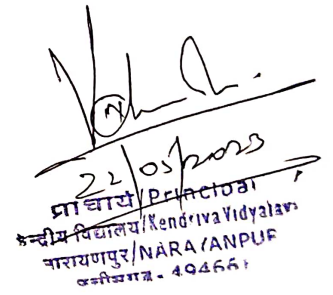 22/05/2023
प्राचार्य/Principal
केन्द्रीय विद्यालय/Kendriya Vidyalaya
नारायणपुर/NARAYANPUR
छत्तीसगढ़ - 494661